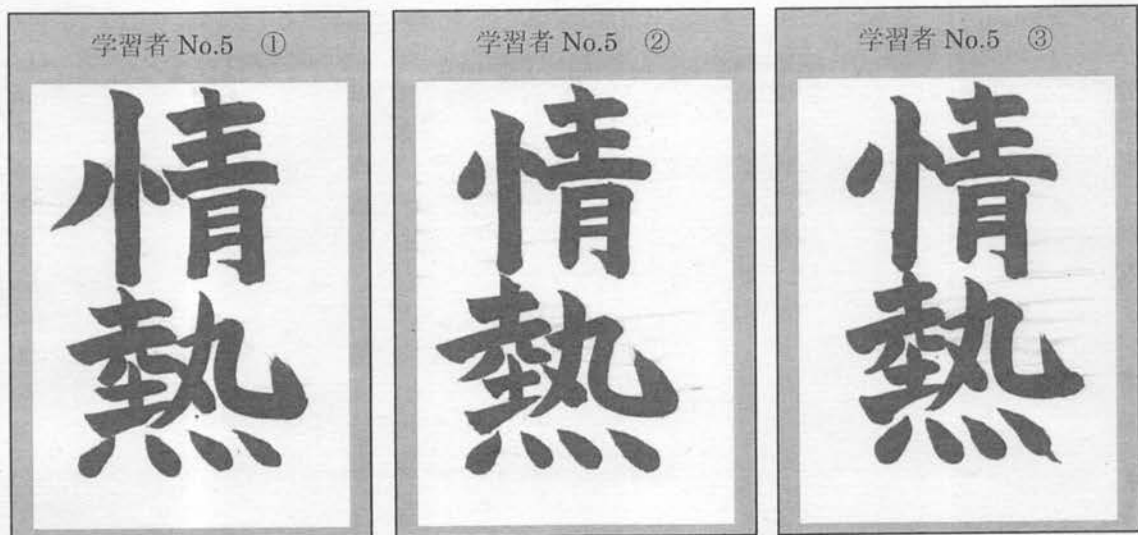 学習者 No.5 ①
情
熱
学習者 No.5 ②
情
熱
学習者 No.5 ③
情
熱